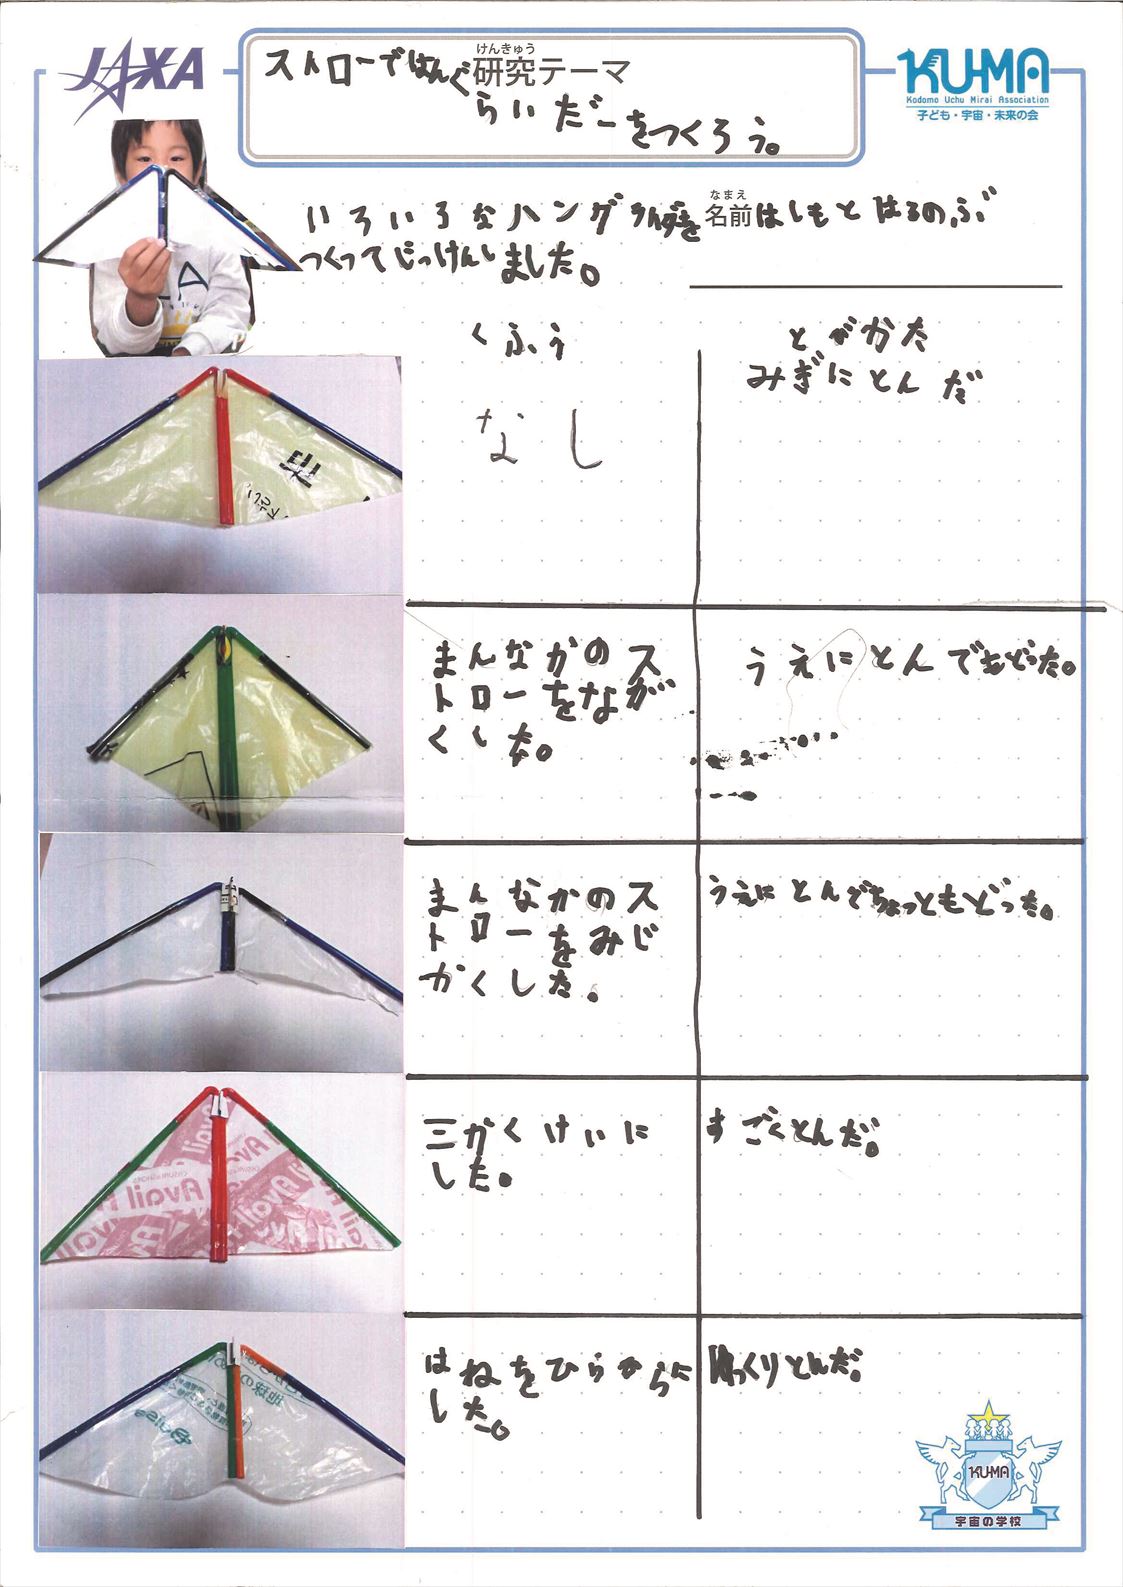 JAXA
けんきゅう
研究テーマ
ストローではんぐ
らいだーをつくろう。
KU-MA
Kodomo Uchu Mirai Association
子ども・宇宙・未来の会
なまえ
名前 はしもと はるのぶ
いろいろなハングライダーを
つくってじっけんしました。
くふう
とびかた
なし
みぎにとんだ
まんなかのス
トローをなが
くした。
うえにとんでもどった。
まんなかのス
トローをみじ
かくした。
うえにとんでちょっともどった。
三かくけいに
した。
すごくとんだ。
はねをひらひらに
した。
ゆっくりとんだ。
Avail Avail
KU-MA
宇宙の学校